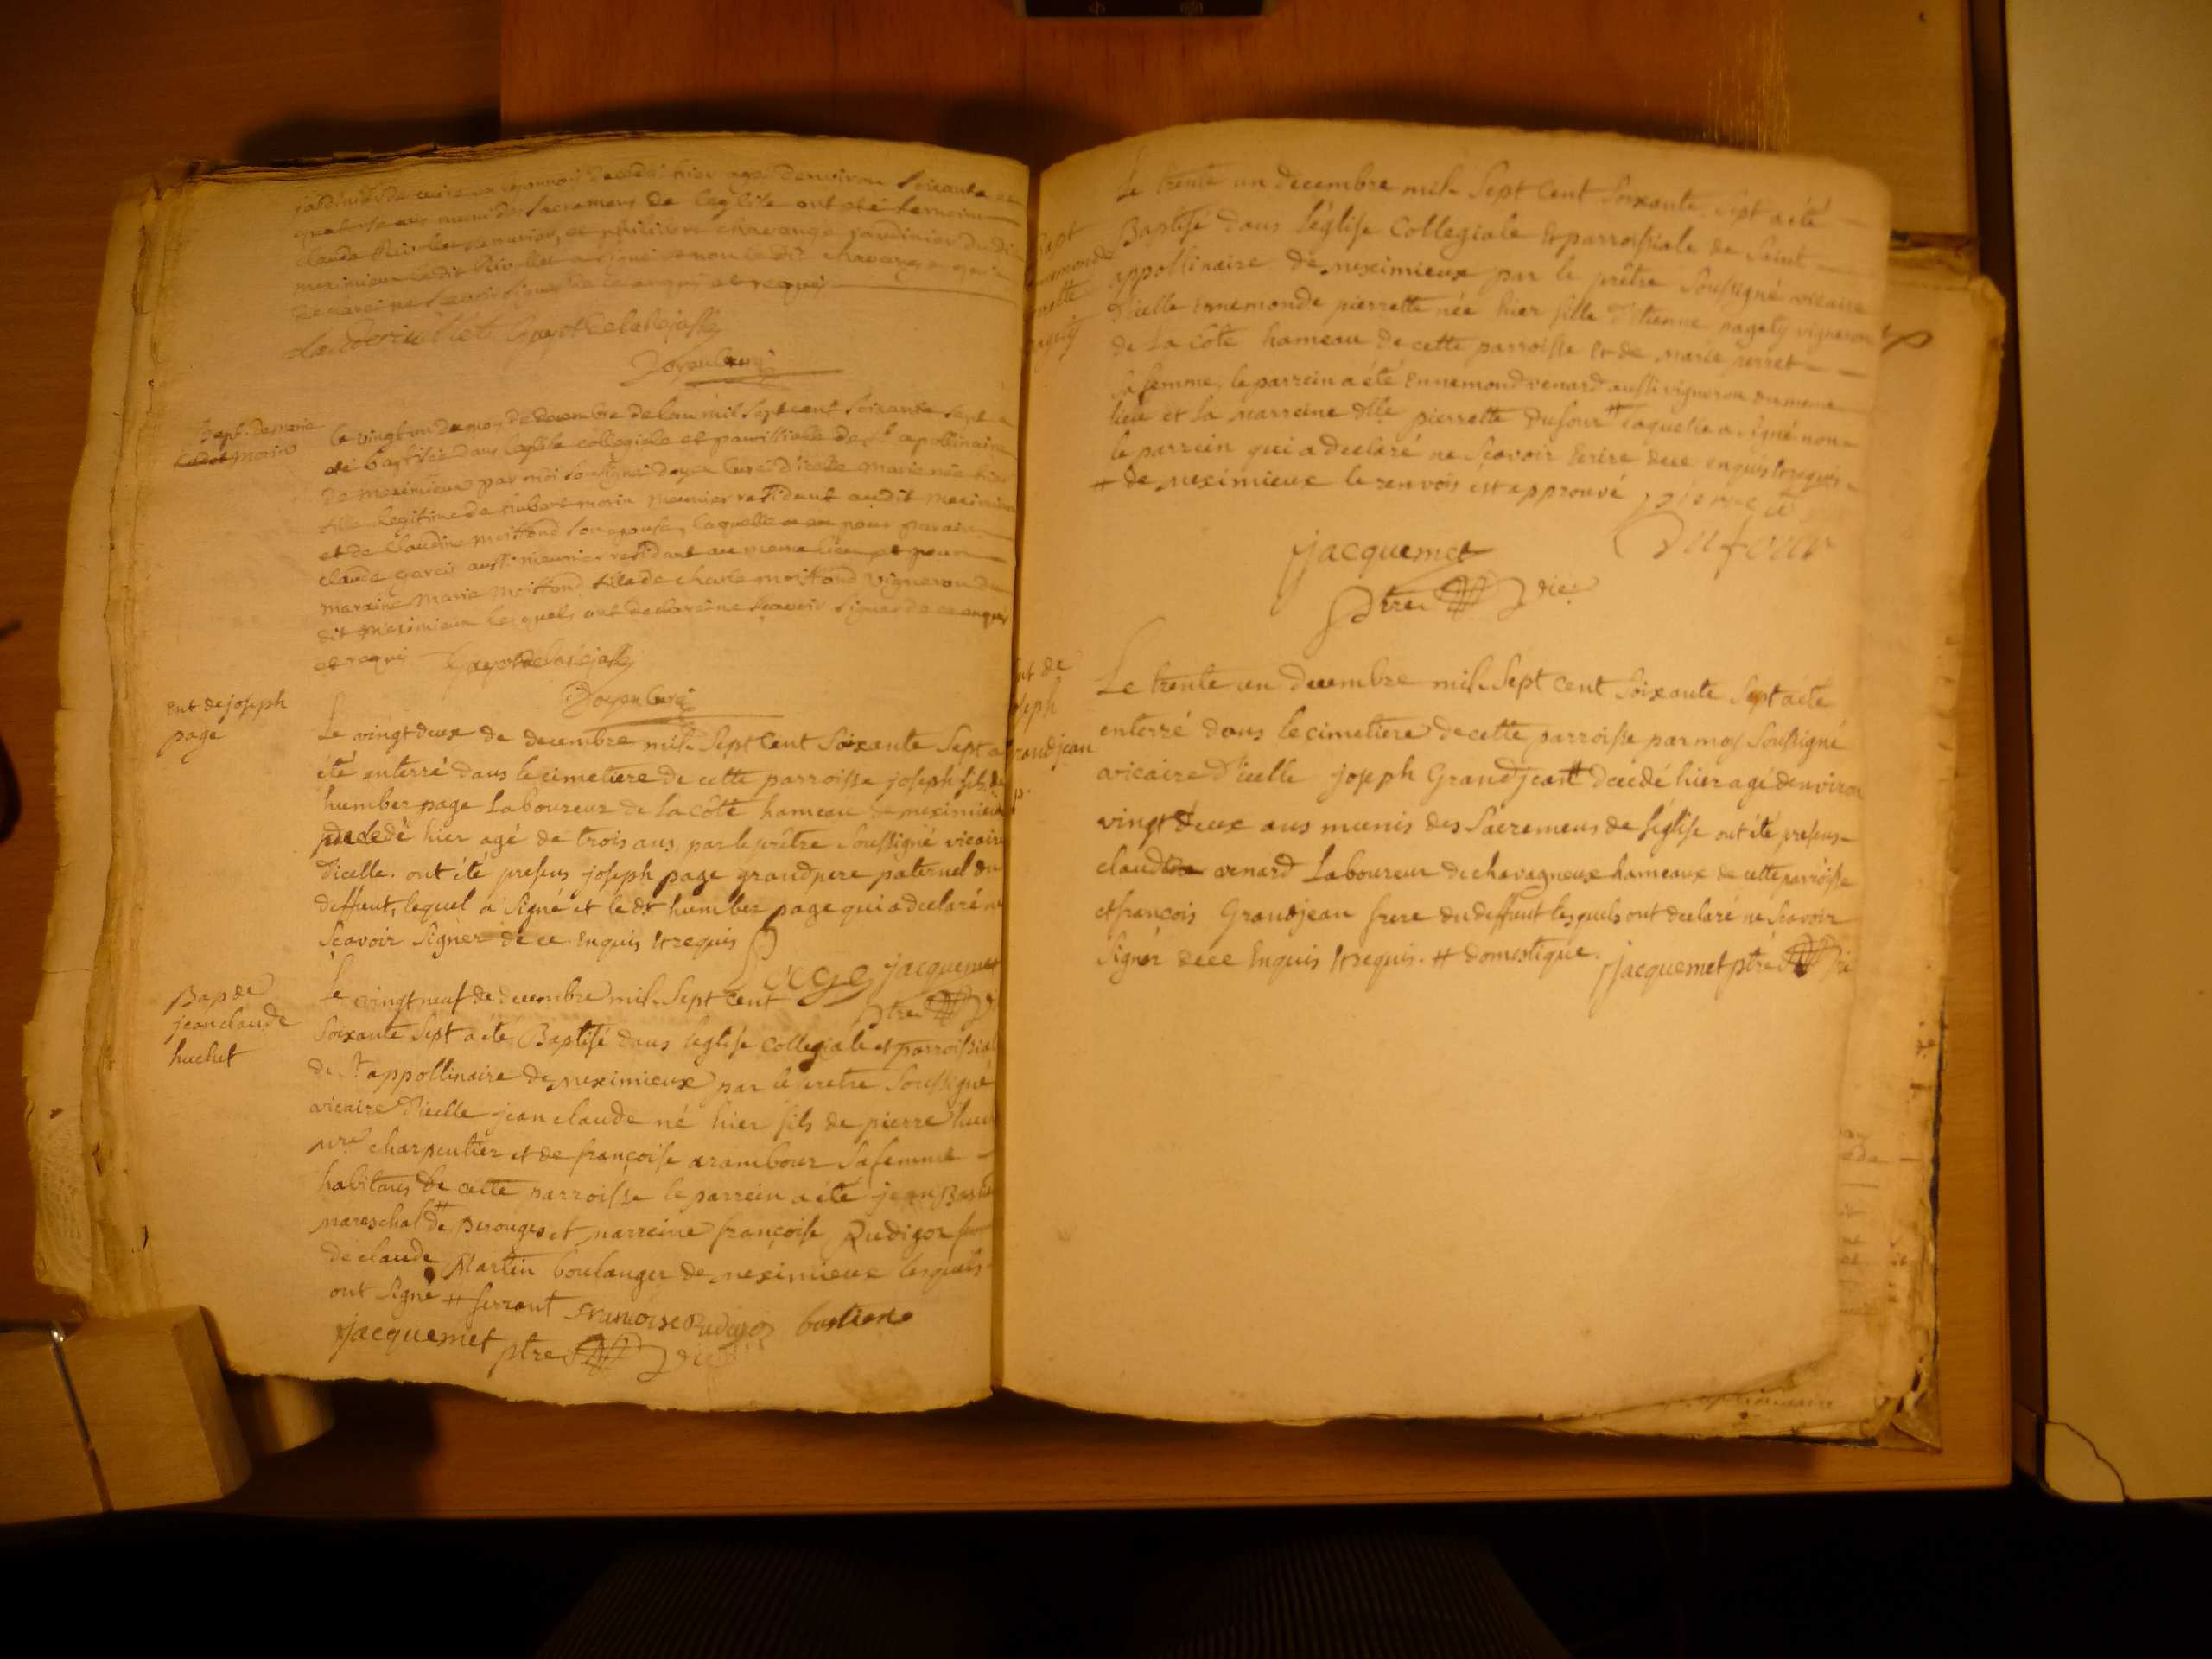 jardinier de decedé hier agé denviron soixante et
quatorze ans muni des sacremens de leglise ont eté temoins
claude et philibert chavange jardinier du dit
meximieux ledit a signé et non le dit chavange qui a
declaré ne scavoir signer de ce enquis et requis
Doyen Curé
Bapt. de marie
morin
le vingt un du mois de decembre de lan mil sept cent soixante sept a
eté baptisée dans leglise collegiale et parroissialle de St apollinaire
de meximieux par moi soussigné doyen curé d'icelle marie née hier
fille legitime de humbert morin meunier residant audit meximieux
et de claudine moiffond son epouse, laquelle a eu pour parain
claude aussi meunier residant au meme lieu et pour
maraine marie moiffond fille de charle moiffond vigneron du
dit meximieux lesquels ont declaré ne sçavoir signer de ce enquis
et requis
Doyen Curé
Ent de joseph
page
Le vingt deux de decembre mil sept cent soixante sept a
été enterré dans le cimetiere de cette parroisse joseph fils de
humber page Laboureur de la côte hameau de meximieux
decedé hier agé de trois ans, par le prêtre soussigné vicaire
d'icelle. ont été presens joseph page grandpere paternel du
deffunt, lequel a signé et le dt humber page qui a declaré ne
scavoir signer de ce Enquis et requis
jacquemet
ptre
Bap de
jean claude
huchet
Le vingt neuf de decembre mil sept cent
soixante sept a été Baptisé dans l'eglise collegiale et parroissial
de St appollinaire de meximieux par le pretre soussigné
vicaire d'icelle jean claude né hier fils de pierre
mre charpentier et de françoise arambour sa femme
habitans de cette parroisse le parrein a été jean
mareschal # de perouges et marreine françoise Rudigoz
de claude Martin boulanger de meximieux lesquels
ont signé # ferrant francoise Rudigoz bastien
jacquemet ptre vic
Le trente un decembre mil sept cent soixante sept a été
Baptisé dans l'église Collegiale et parroissiale de Saint
appollinaire de meximieux par le prêtre soussigné vicaire
d'icelle ennemonde pierrette née hier fille d'étienne pagety vigneron
de la côte hameau de cette parroisse et de marie perret
sa femme, le parrein a été Ennemond venard aussi vigneron du meme
lieu et la marreine dlle pierrette Dufour # laquelle a signé non
le parrein qui a declaré ne sçavoir Ecrire de ce enquis et requis
# de meximieux le renvois est approuvé pierrete
Dufour
jacquemet
ptre vic
nt de
oseph
randjean
Le trente un decembre mil sept cent soixante sept a été
enterré dans le cimetiere de cette parroisse par moy soussigné
vicaire d'icelle joseph Grandjean # decedé hier agé denviron
vingt deux ans munis des sacremens de l'église ont été presens
claude venard Laboureur de chavagneux hameaux de cette parroisse
et françois Grandjean frere du deffunt lesquels ont declaré ne scavoir
signer de ce Enquis et requis. # domestique. jacquemet ptre